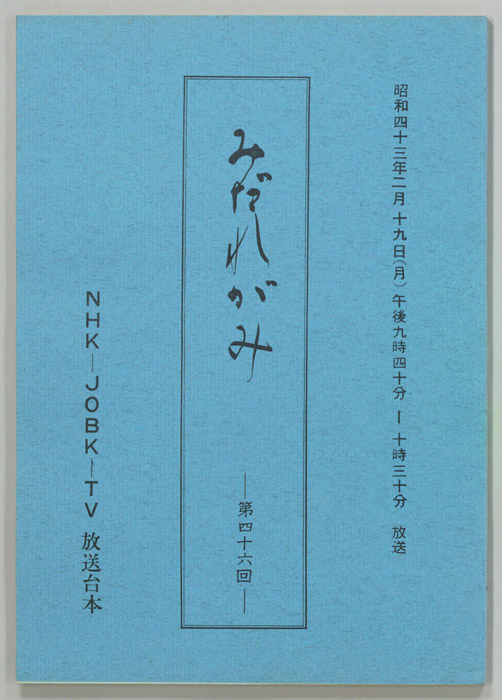 昭和四十三年二月十九日(月)午後九時四十分ー十時三十分 放送
みだれがみ
―第四十六回―
NHK―JOBK―TV 放送台本